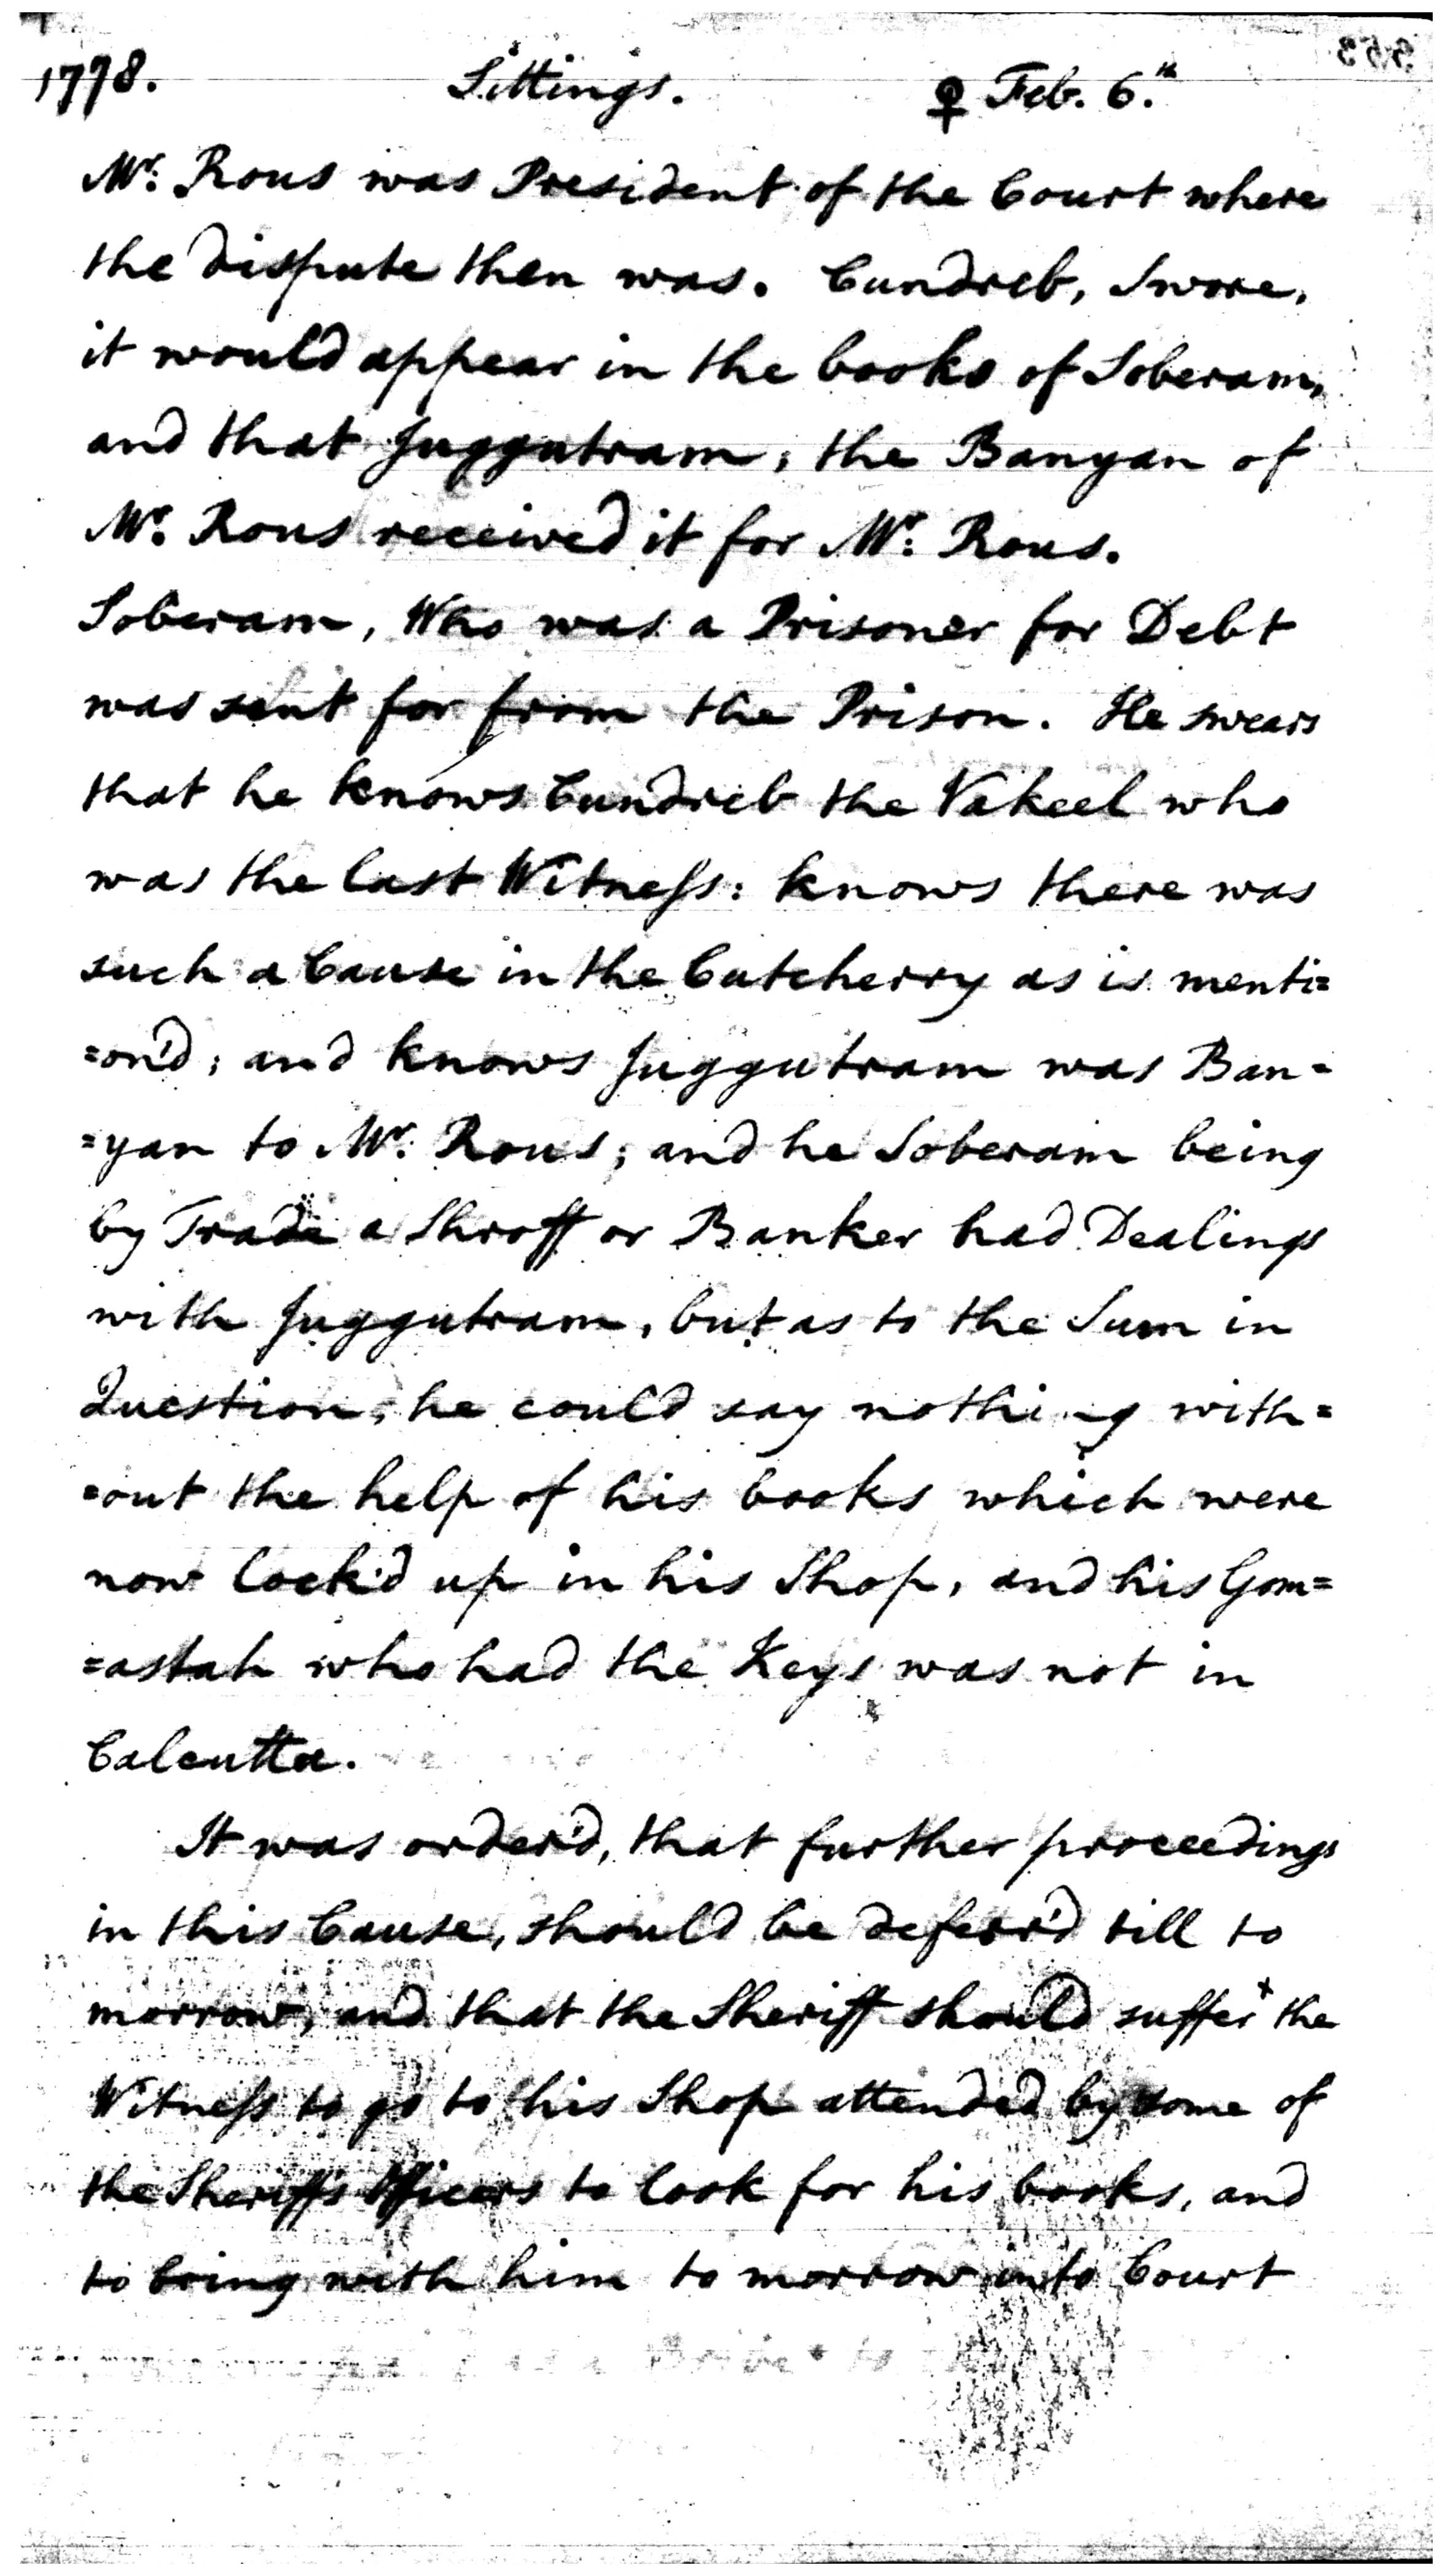 1778. Sittings. ♀ Feb. 6.th
Mr. Rous was President of the Court where
the dispute then was. Cundreb, Swore,
it would appear in the books of Soberam,
and that Juggutram, the Banyan of
Mr. Rous received it for Mr. Rous.
Soberam, Who was a Prisoner for Debt
was sent for from the Prison. He swears
that he knows Cundreb the Vakeel who
was the last Witneſs: knows there was
such a Cause in the Cutcherry as is menti=
=on'd; and knows Juggutram was Ban=
=yan to Mr. Rous; and he Soberam being
by Trade a Shroff or Banker had Dealings
with Juggutram, but as to the Sum in
Question, he could say nothing with=
=out the help of his books which were
now lock'd up in his Shop, and his Gom=
=astah who had the Keys was not in
Calcutta.
It was order'd, that further proceedings
in this Cause, should be deferr'd till to
morrow, and that the Sheriff should suffer + the
Witneſs to go to his Shop attended by some of
the Sheriff's Officers to look for his books, and
to bring with him to morrow into Court